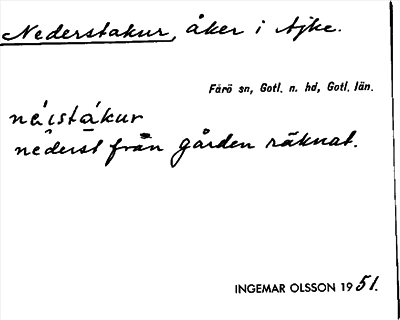 Nederstakur, åker i Ajke.
Fårö sn, Gotl. n. hd, Gotl. län.
néịstákur
nederst från gården räknat.
INGEMAR OLSSON 1951.